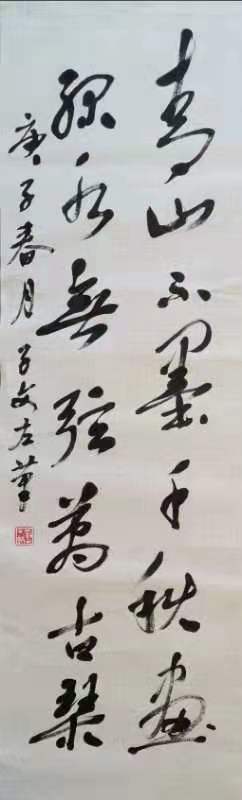 青山不墨千秋画
绿水無弦萬古琴
庚子春月子文左筆